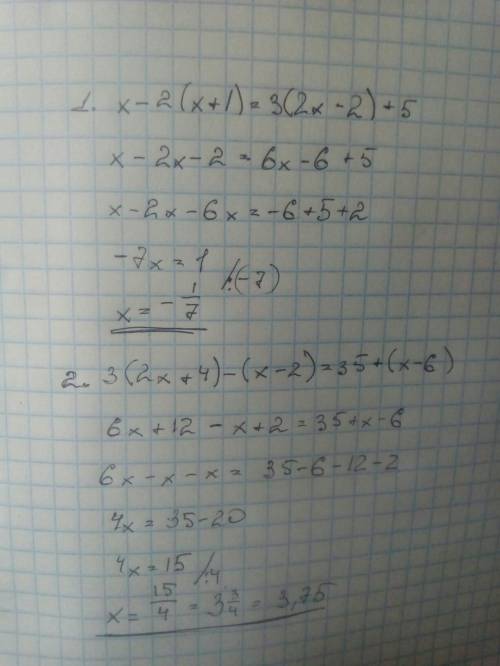 1. x - 2(x+1) = 3(2x-2)+5
x - 2x - 2 = 6x - 6 + 5
x - 2x - 6x = -6 + 5 + 2
-7x = 1 /:(-7)
x = - 1/7
2. 3(2x+4)-(x-2)=35+(x-6)
6x+12 - x+2 = 35+x-6
6x - x - x = 35-6-12-2
4x = 35-20
4x = 15 /:4
x = 15/4 = 3 3/4 = 3,75